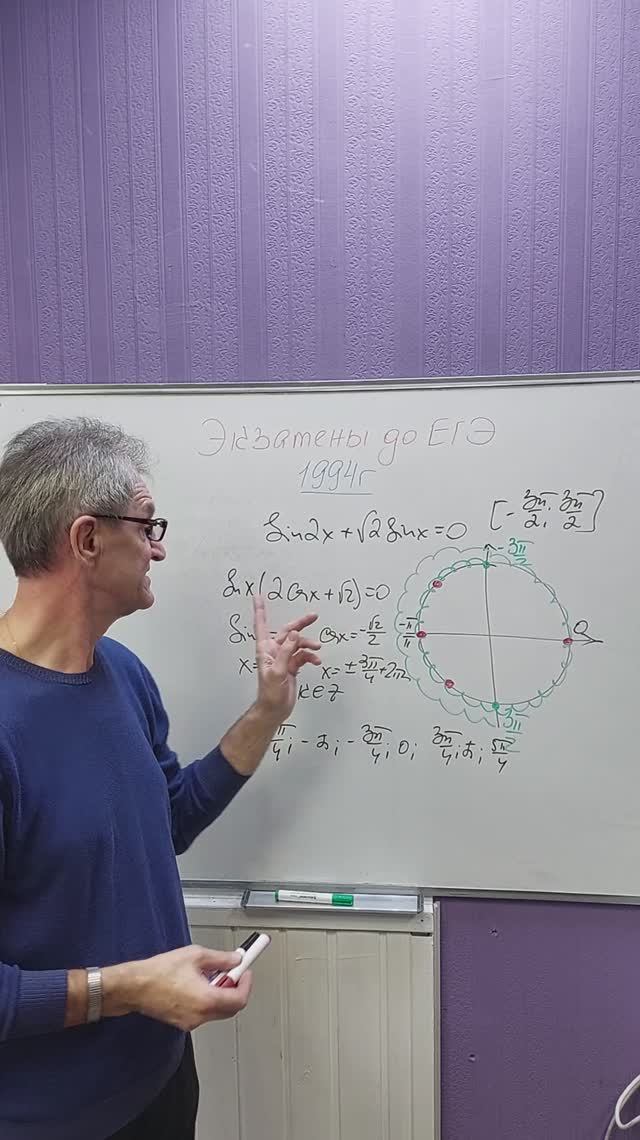 Экзамены до ЕГЭ
1994г
Sin2x + √2 Sinx = 0
[-3π/2; 3π/2]
Sinx(2Cosx + √2) = 0
Sin
Cosx = -√2/2
x =
x = ± 3π/4 + 2πk
k ∈ Z
π/4; -π; -3π/4; 0; 3π/4; π; 5π/4
-3π/2
-π
π
0
3π/2